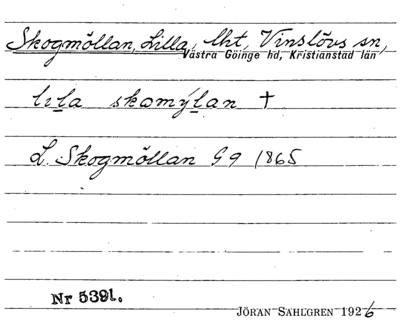 Skogmöllan, Lilla, lht, Vinslövs sn,
Västra Göinge hd, Kristianstad län
lila skomýlan †
L. Skogmöllan G9 1865
Nr 5391.
JÖRAN SAHLGREN 1926